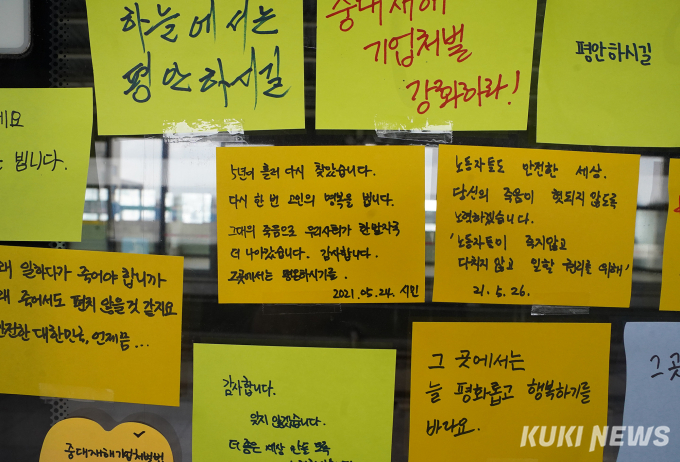 하늘에서는
평안하시길
중대재해
기업처벌
강화하라!
평안하시길
빕니다.
5년이 흘러 다시 찾았습니다.
다시 한 번 고인의 명복을 빕니다.
그대의 죽음으로 우리사회가 한 발자국
더 나아갔습니다. 감사합니다.
그곳에서는 평온하시기를.
2021.05.24. 시민
노동자도 안전한 세상.
당신의 죽음이 헛되지 않도록
노력하겠습니다.
'노동자들이 죽지않고
다치지 않고 일할 권리를 위해'
21.5.26.
왜 일하다가 죽어야 합니까
왜 죽어서도 편치 않을 것 같지요
안전한 대한민국, 언제쯤...
감사합니다.
잊지 않겠습니다.
더 좋은 세상 만들도록
그 곳에서는
늘 평화롭고 행복하기를
바라요.
그곳
중대재해기업처벌법
KUKI NEWS